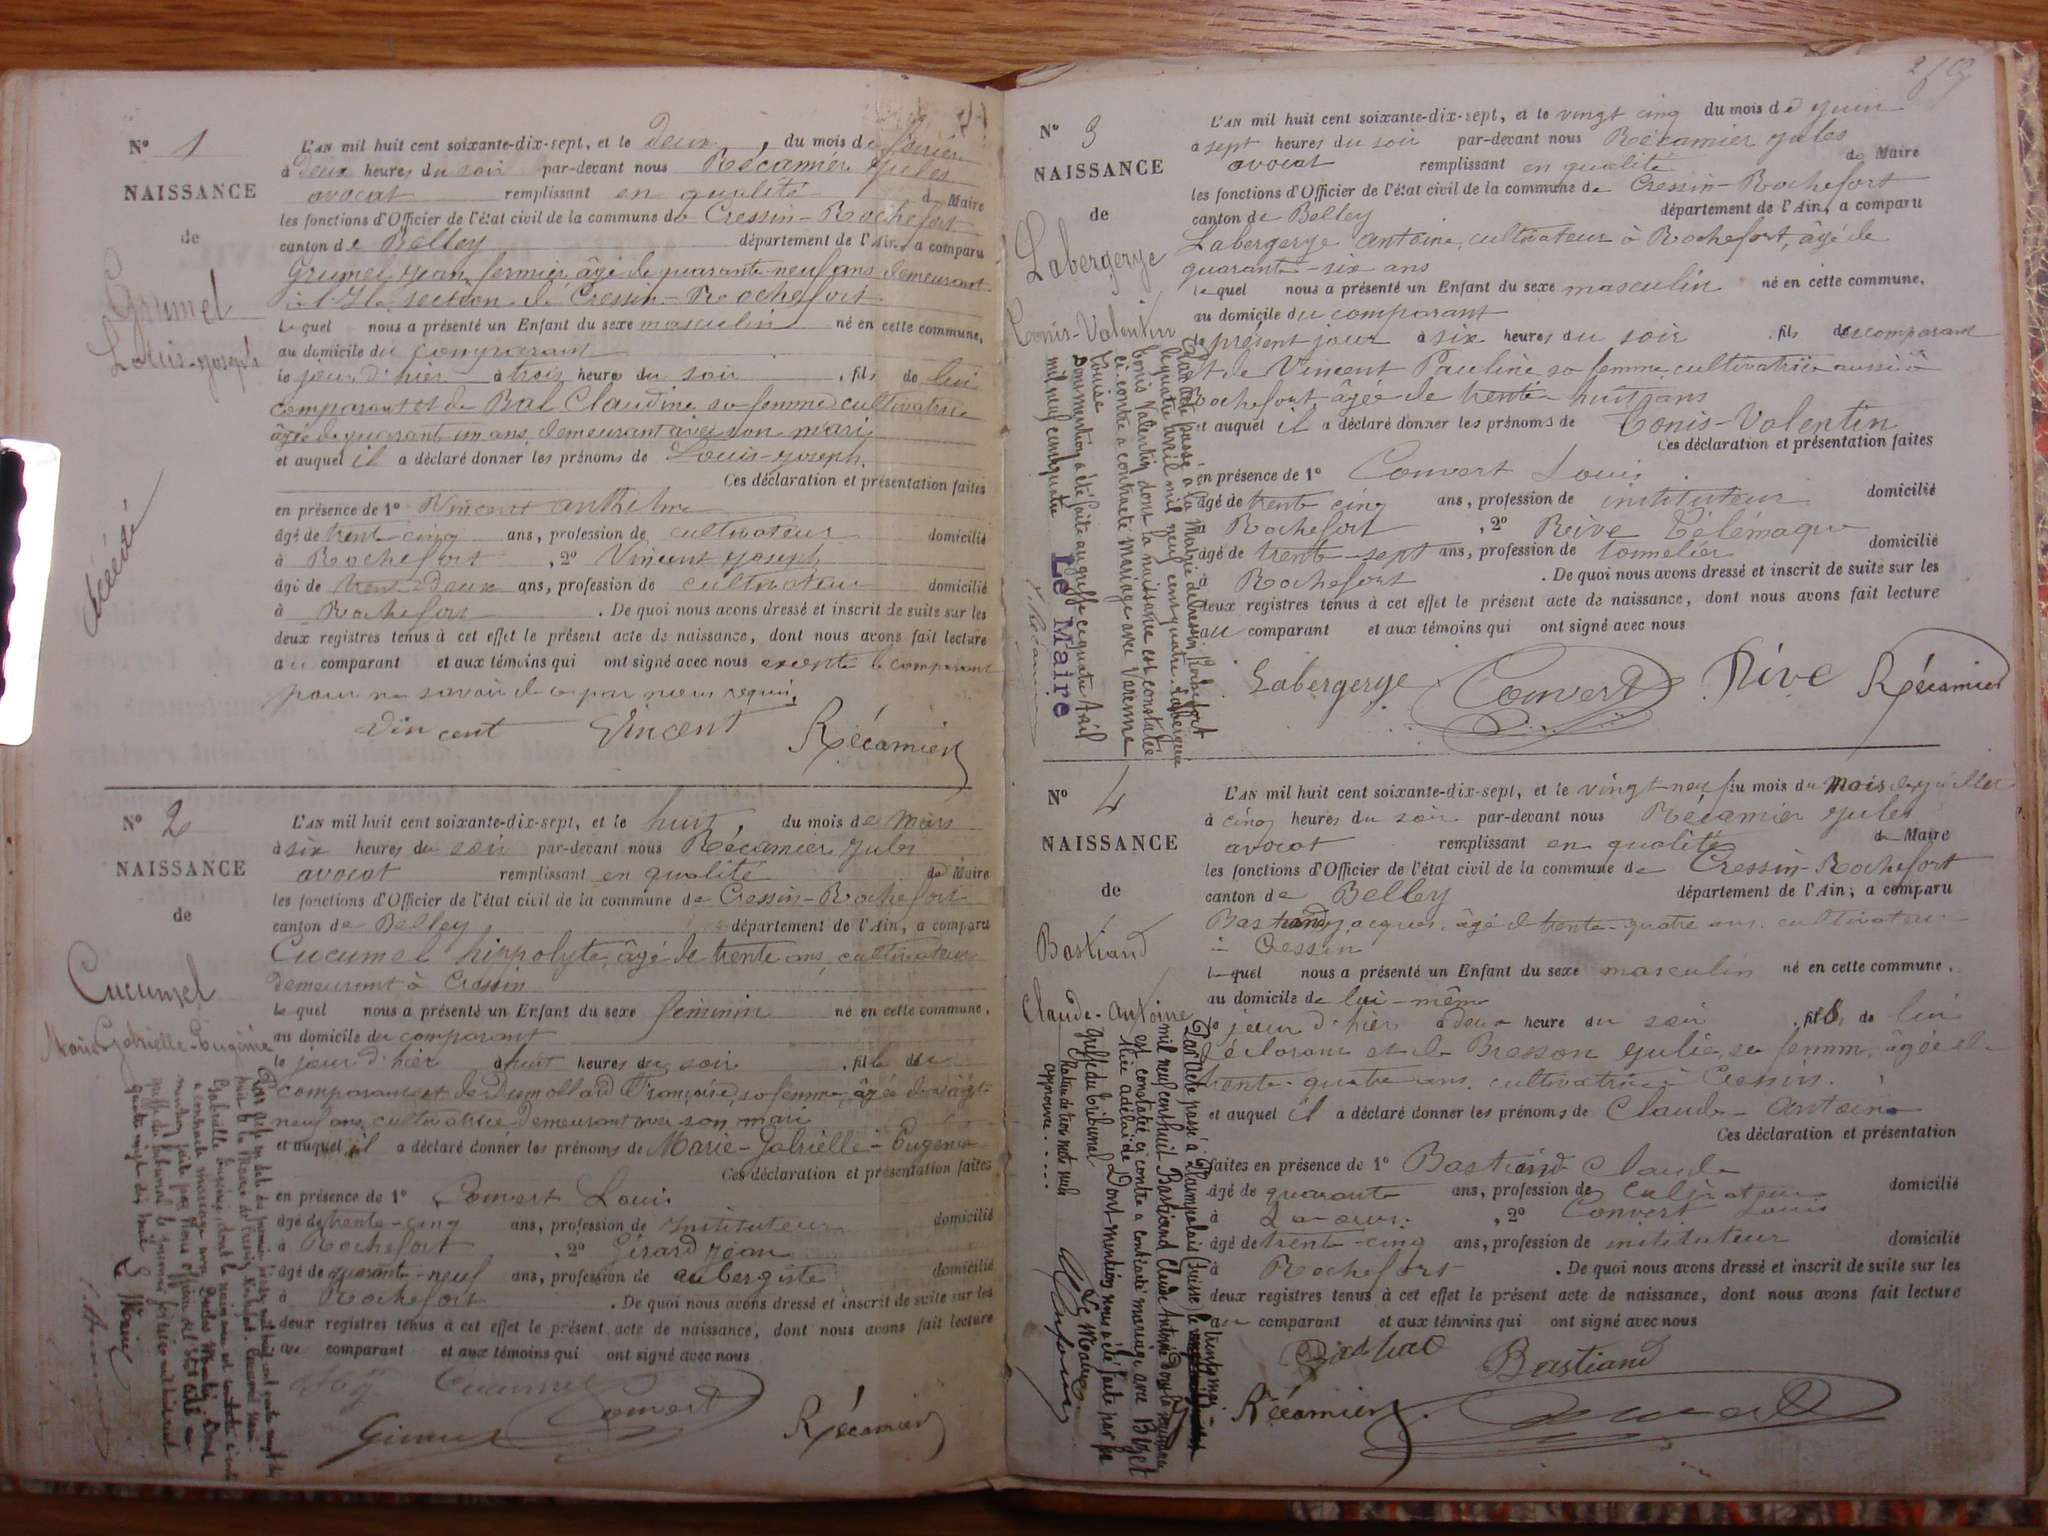 N° 1
NAISSANCE
de
Grumel
Louis-Joseph
décédé
L'AN mil huit cent soixante-dix-sept, et le deux, du mois de février
à deux heures du soir par-devant nous Récamier Jules
avocat remplissant en qualité de Maire
les fonctions d'Officier de l'état civil de la commune de Cressin-Rochefort
canton de Belley département de l'Ain, a comparu
Grumel Jean, fermier, âgé de quarante-neuf ans demeurant
à section de Cressin-Rochefort
lequel nous a présenté un Enfant du sexe masculin né en cette commune,
au domicile du comparant
le jour d'hier à trois heures du soir, fils de lui
comparant et de Bal Claudine sa femme cultivatrice
âgée de quarante un ans, demeurant avec son mari
et auquel il a déclaré donner les prénoms de Louis-Joseph.
Ces déclaration et présentation faites
en présence de 1° Vincent Anthelme
âgé de trente cinq ans, profession de cultivateur domicilié
à Rochefort, 2° Vincent Joseph
âgé de trente-deux ans, profession de cultivateur domicilié
à Rochefort. De quoi nous avons dressé et inscrit de suite sur les
deux registres tenus à cet effet le présent acte de naissance, dont nous avons fait lecture
au comparant et aux témoins qui ont signé avec nous excepté le comparant
pour ne savoir de ce par nous requis.
Vincent Vincent Récamier
N° 2
NAISSANCE
de
Cucumel
Marie-Gabrielle-Eugénie
L'AN mil huit cent soixante-dix-sept, et le huit, du mois de Mars
à six heures du soir par-devant nous Récamier Jules
avocat remplissant en qualité de Maire
les fonctions d'Officier de l'état civil de la commune de Cressin-Rochefort
canton de Belley département de l'Ain, a comparu
Cucumel hippolyte, âgé de trente ans, cultivateur
demeurant à Cressin
lequel nous a présenté un Enfant du sexe féminin né en cette commune,
au domicile du comparant
le jour d'hier à huit heures du soir, fille du
comparant et de Dumollard Françoise, sa femme, âgée de vingt
neuf ans, cultivatrice demeurant avec son mari
et auquel il a déclaré donner les prénoms de Marie-Gabrielle-Eugénie
Ces déclaration et présentation faites
en présence de 1° Convert Louis
âgé de trente-cinq ans, profession de instituteur domicilié
à Rochefort, 2° Girard Jean
âgé de quarante-neuf ans, profession de aubergiste domicilié
à Rochefort. De quoi nous avons dressé et inscrit de suite sur les
deux registres tenus à cet effet le présent acte de naissance, dont nous avons fait lecture
au comparant et aux témoins qui ont signé avec nous
Cucumel Convert
Récamier
Le Maire
N° 3
NAISSANCE
de
Labergerye
Tonis-Valentin
L'AN mil huit cent soixante-dix-sept, et le vingt cinq du mois de Juin
à sept heures du soir par-devant nous Récamier Jules
avocat remplissant en qualité de Maire
les fonctions d'Officier de l'état civil de la commune de Cressin-Rochefort
canton de Belley département de l'Ain, a comparu
Labergerye Antoine, cultivateur à Rochefort, âgé de
quarante-six ans
lequel nous a présenté un Enfant du sexe masculin né en cette commune,
au domicile du comparant
le présent jour à six heures du soir, fils du comparant
et de Vincent Pauline sa femme, cultivatrice aussi à
Rochefort, âgée de trente-huit ans
et auquel il a déclaré donner les prénoms de Tonis-Valentin
Ces déclaration et présentation faites
en présence de 1° Convert Louis
âgé de trente cinq ans, profession de instituteur domicilié
à Rochefort, 2° Rive Télémaque
âgé de trente-sept ans, profession de tonnelier domicilié
à Rochefort. De quoi nous avons dressé et inscrit de suite sur les
deux registres tenus à cet effet le présent acte de naissance, dont nous avons fait lecture
au comparant et aux témoins qui ont signé avec nous
Labergerye Convert Rive Récamier
Par acte passé à la Mairie de Cressin Rochefort
le quatre avril mil neuf cent quatre Labergerye
Tonis Valentin dont la naissance est constatée
ci contre a contracté mariage avec Varenne
Louise
Dont mention a été faite au greffe le quatre Avril
mil neuf cent quatre
Le Maire
N° 4
NAISSANCE
de
Bastiand
Claude-Antoine
L'AN mil huit cent soixante-dix-sept, et le vingt-neuf du mois du mois de juillet
à cinq heures du soir par-devant nous Récamier Jules
avocat remplissant en qualité de Maire
les fonctions d'Officier de l'état civil de la commune de Cressin-Rochefort
canton de Belley département de l'Ain, a comparu
Bastiand Jacques, âgé de trente-quatre ans, cultivateur
à Cressin
lequel nous a présenté un Enfant du sexe masculin né en cette commune,
au domicile de lui-même
le jour d'hier à deux heure du soir, fils de lui
déclarant et de Bresson Julie, sa femme, âgée de
trente-quatre ans, cultivatrice à Cressin.
et auquel il a déclaré donner les prénoms de Claude-Antoine
Ces déclaration et présentation
faites en présence de 1° Bastiand Claude
âgé de quarante ans, profession de cultivateur domicilié
à , 2° Convert Louis
âgé de trente-cinq ans, profession de instituteur domicilié
à Rochefort. De quoi nous avons dressé et inscrit de suite sur les
deux registres tenus à cet effet le présent acte de naissance, dont nous avons fait lecture
au comparant et aux témoins qui ont signé avec nous
Bastiand
Récamier Convert
Par acte passé à Plainpalais (Suisse) le trente mai
mil neuf cent huit Bastiand Claude Antoine dont la naissance
est constatée ci contre a contracté mariage avec
Alice Adélaïde. Dont mention nous a été faite par le
Greffe du tribunal Le Maire
Rature de trois mots nuls
approuvée